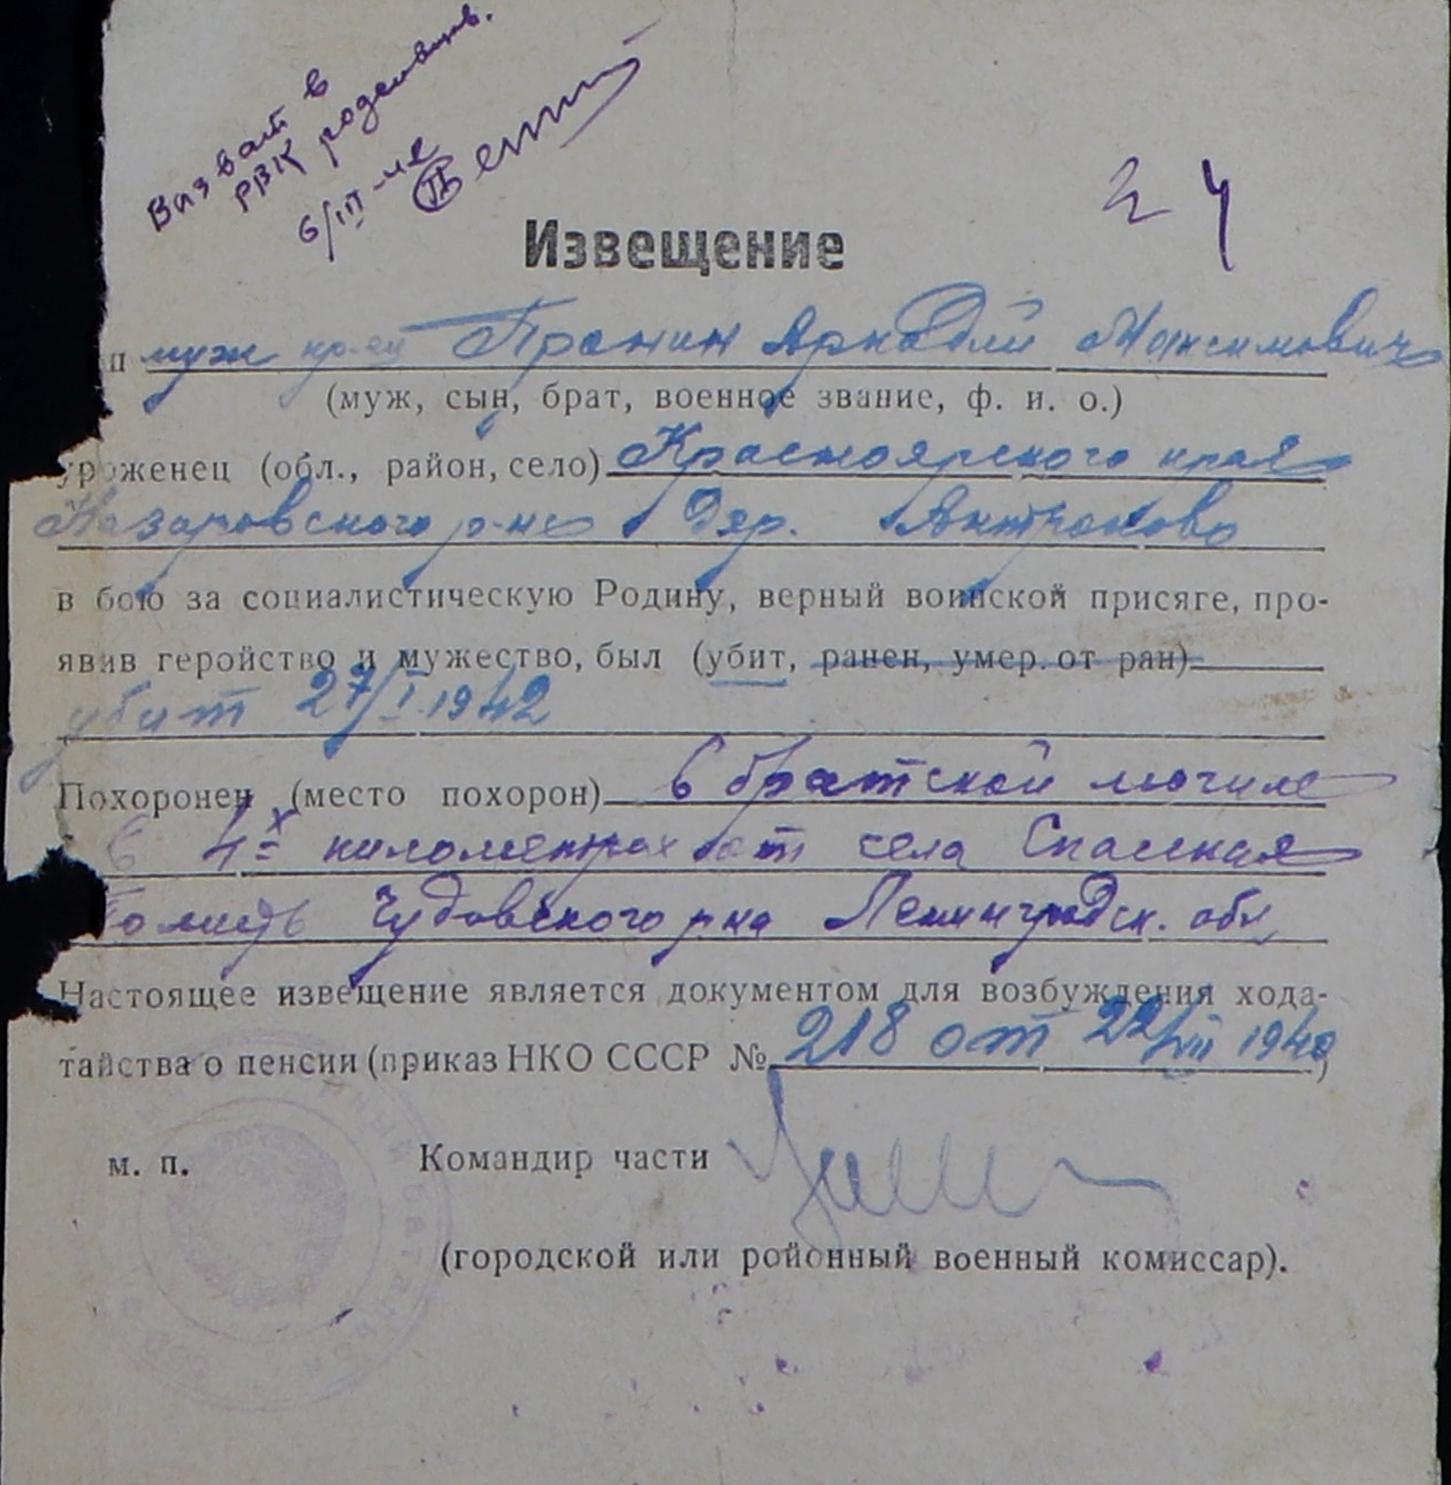 Вызват в
РВК родствен.
6/III-42
24
Извещение
п муж кр-ец Пронин Аркадий Максимович
(муж, сын, брат, военное звание, ф. и. о.)
уроженец (обл., район, село) Красноярского края
Назаровского р-на дер. Антропово
в бою за социалистическую Родину, верный воинской присяге, про-
явив геройство и мужество, был (убит, ранен, умер. от ран)
убит 27/I 1942
Похоронен (место похорон) в братской могиле
в 4х километрах от села Спасская
Полисть Чудовского р-на Ленинградск. обл
Настоящее извещение является документом для возбуждения хода-
тайства о пенсии (приказ НКО СССР № 218 от 22/VII 1940)
м. п. Командир части
(городской или ройонный военный комиссар).